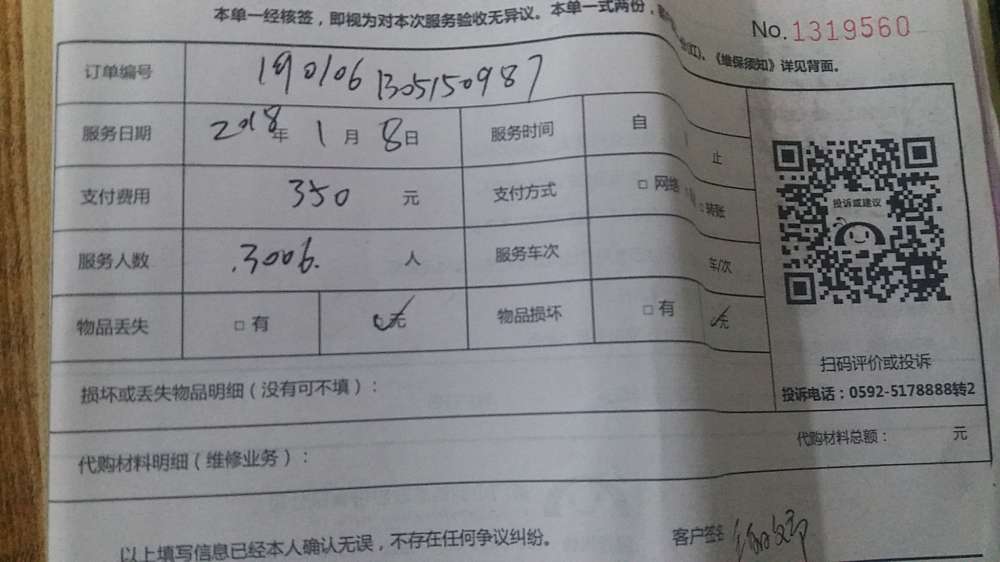 本单一经核签，即视为对本次服务验收无异议。本单一式两份，
No.1319560
《维保须知》详见背面。
订单编号 190106 1305150987
服务日期 2018年 1月 8日 服务时间 自 止
支付费用 350 元 支付方式 □ 网络 □转账
服务人数 .3006. 人 服务车次 车/次
物品丢失 □ 有 □无 物品损坏 □ 有 □无
投诉或建议
扫码评价或投诉
投诉电话：0592-5178888转2
损坏或丢失物品明细（没有可不填）：
代购材料明细（维修业务）：
代购材料总额： 元
以上填写信息已经本人确认无误，不存在任何争议纠纷。
客户签名